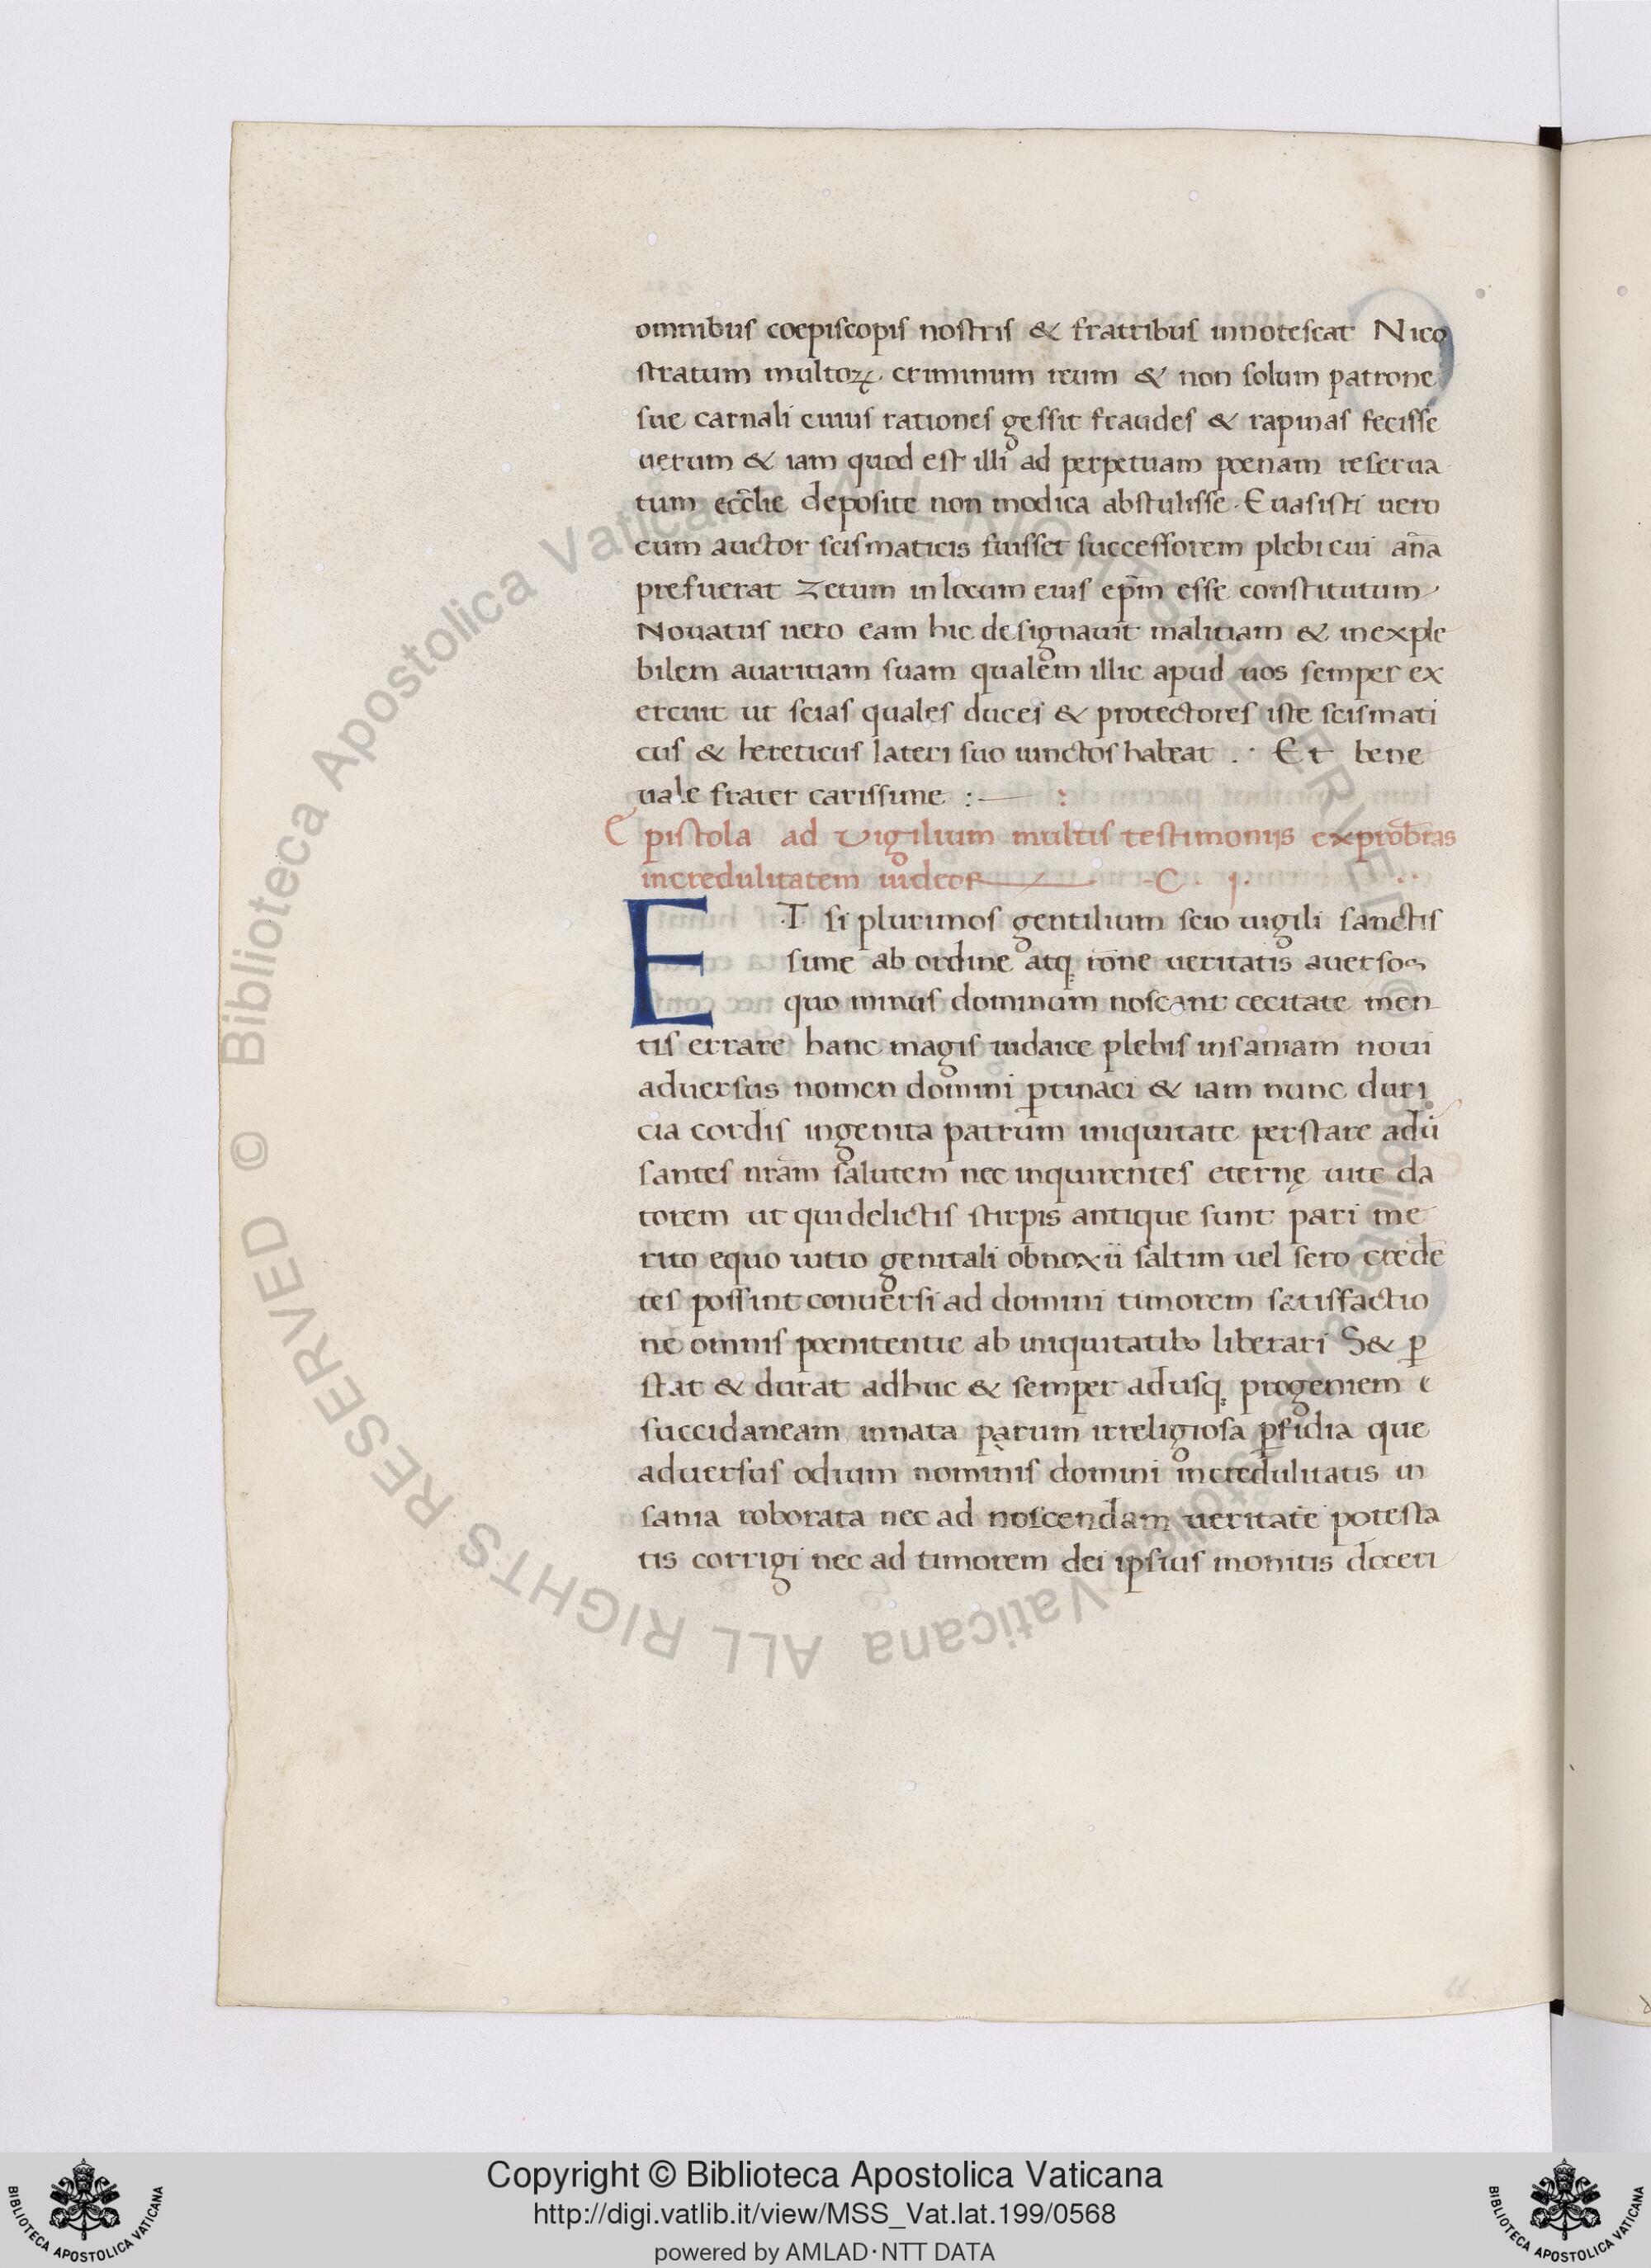 omnibus coepiscopis nostris & fratribus innotescat Nico
stratum multoꝝ criminum reum & non solum patrone
sue carnali cuius rationes gessit fraudes & rapinas fecisse
uerum & iam quod est illi ad perpetuam poenam reserua
tum eccl̄ie deposite non modica abstulisse. Euasisti uero
cum auctor scismaticis fuisset successorem plebi cui an̄a
prefuerat Zetum in locum eius ep̄m esse constitutum
Nouatus uero eam hic designauit malitiam & inexple
bilem auaritiam suam qualem illic apud uos semper ex
ercuit ut scias quales duces & protectores iste scismati
cus & hereticus lateri suo iunctos habeat . Et bene
uale frater carissime :— :
Epistola ad Vigilium multis testimoniis exprob̄ras
incredulitatem iudeoꝝ — C. 1.
ET si plurimos gentilium scio uigili sanctis
sime ab ordine atq; rōne ueritatis auersos
quo minus dominum noscant cecitate men
tis errare hanc magis iudaice plebis insaniam noui
aduersus nomen domini ꝑtinaci & iam nunc duri
cia cordis ingenita patrum iniquitate perstare adū
santes nr̄am salutem nec inquirentes eternę uite da
torem ut qui delictis stirpis antique sunt pari me
rito equo uitio genitali obnoxii saltim uel sero credē
tes possint conuersi ad domini timorem satisfactio
ne omnis poenitentie ab iniquitatibꝰ liberari S& ꝑ
stat & durat adhuc & semper adusq; progeniem
succidaneam innata patrum irreligiosa ꝑfidia que
aduersus odium nominis domini incredulitatis in
sania roborata nec ad noscendam ueritatē potesta
tis corrigi nec ad timorem dei ipsius monitis doceri
© Biblioteca Apostolica Vaticana ALL RIGHTS RESERVED
© Biblioteca Apostolica Vaticana ALL RIGHTS RESERVED
Copyright © Biblioteca Apostolica Vaticana
http://digi.vatlib.it/view/MSS_Vat.lat.199/0568
powered by AMLAD·NTT DATA
BIBLIOTECA APOSTOLICA VATICANA
BIBLIOTECA APOSTOLICA VATICANA